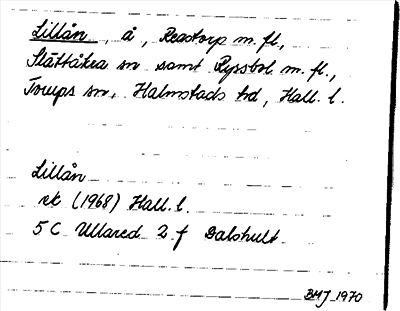 Lillån, å, Reastorp m. fl.,
Slättåkra sn samt Ryssbol m. fl.,
Torups sn, Halmstads hd, Hall. l.
Lillån
ek (1968) Hall. l.
5 C Ullared 2 f Galshult
BMJ 1970